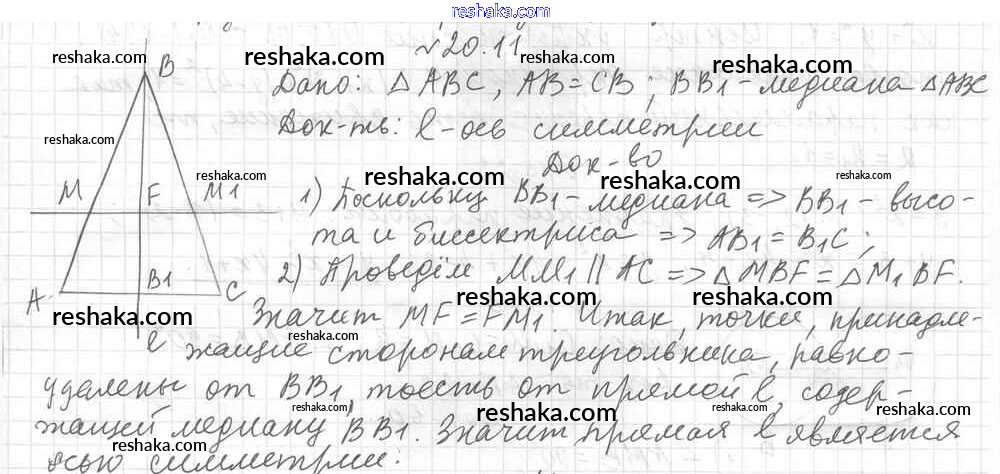 reshaka.com
№20.11
Дано: △ABC, AB=CB; BB1-медиана △ABC
Док-ть: l-ось симметрии
Док-во
1) Поскольку BB1-медиана => BB1-высо-
та и биссектриса => AB1=B1C;
2) Проведём MM1||AC => △MBF=△M1BF.
Значит MF=FM1. Итак, точки, принадле-
жащие сторонам треугольника, равно-
удалены от BB1, тоесть от прямой l, содер-
жащей медиану BB1. Значит прямая l является
осью симметрии.
B
M F M1
A B1 C
l
reshaka.com reshaka.com reshaka.com
reshaka.com
reshaka.com reshaka.com reshaka.com
reshaka.com reshaka.com reshaka.com
reshaka.com
reshaka.com reshaka.com reshaka.com
reshaka.com reshaka.com reshaka.com